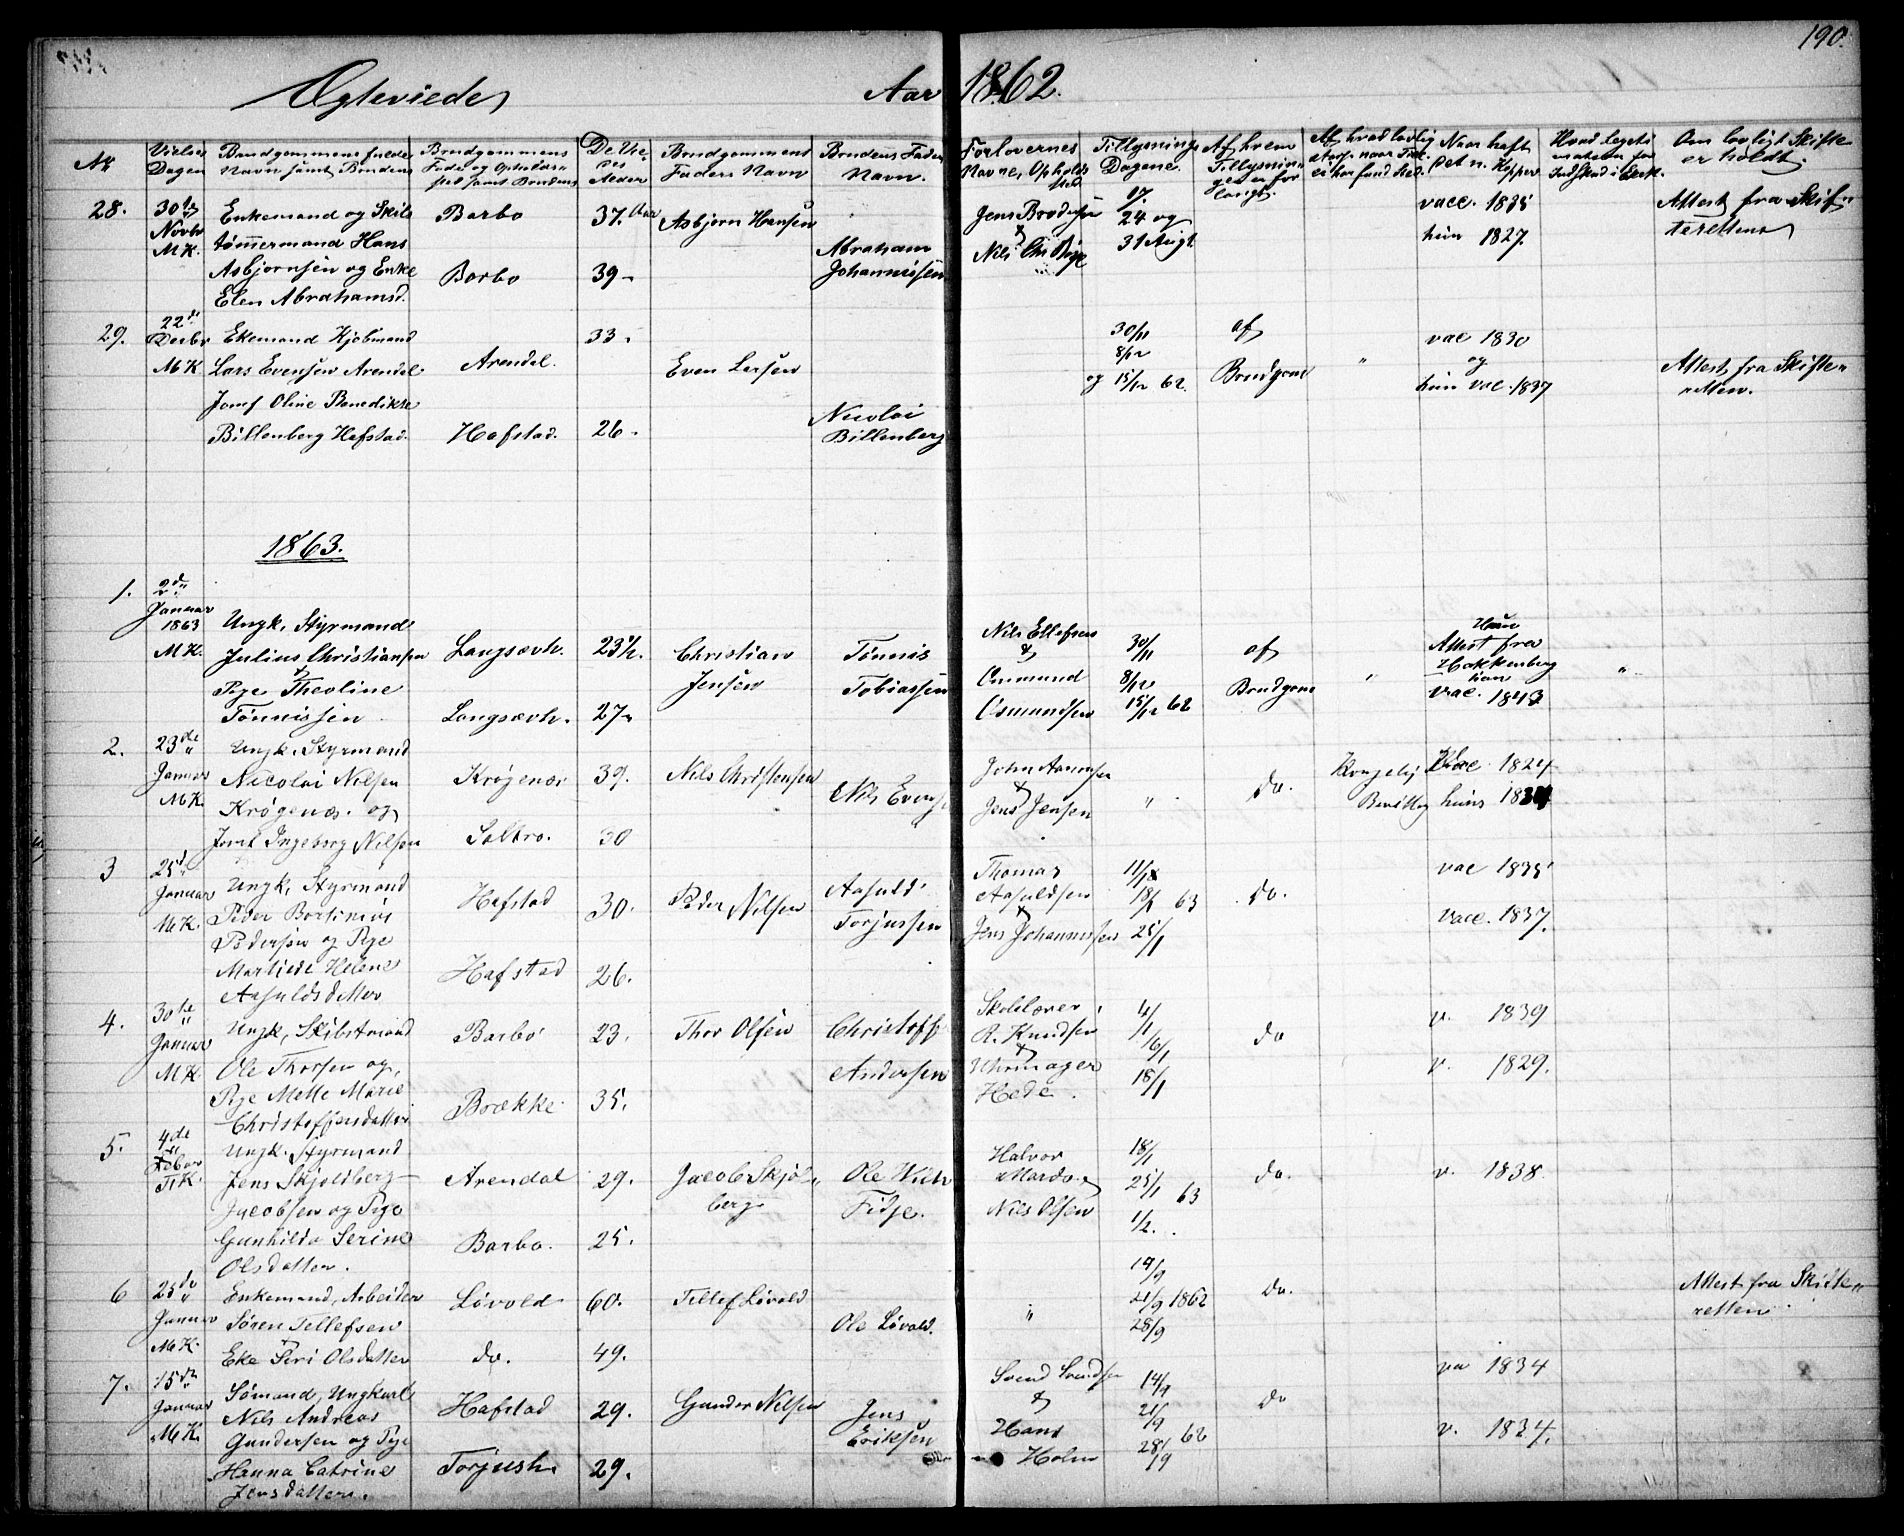 190.
Ægteviede Aar 1862.
No
Vielses Dagen
Brudgommens fulde Navn samt Brudens
Brudgommens Føde og Opholdssted samt Brudens
De Viedes Alder
Brudgommens Faders Navn
Brudens Faders Navn.
Forlovernes Navne, Opholdssted
Tillysnings Dagene.
Af hvem Tillysningen er forlangt.
Naar haft
Om lovligt Skifte er holdt.
28. 30te Novbr M K.
Enkemand og Skibs
tømmermand Hans
Asbjørnsen og Enke
Elen Abrahamsd.
Barbo
Barbo
37. Aar
39 -
Asbjørn Hansen
Abraham
Johannissen
Jens
&
Nils Chr
17.
24 og
31 Augt
vacc. 1835
hun 1827.
Attest fra Skif-
teretten
29. 22de Decbr M K
Ekemand Kjøbmand
Lars Evensen Arendal
Jomf Oline Benedikte
Billenberg Hafstad.
Arendal.
Hafstad.
33 -
26 -
Even Larsen
Nicolai
Billenberg
30/11
8/12
og 15/12 62.
af
Brudgom
"
vac 1830
og
hun vac. 1837
Attest fra Skifte-
retten.
1863.
1. 2den Januar 1863 M K.
Ungk. Styrmand
Julius Christiansen
&
Pige Theoline
Tønnissen
Langsævh.
Langsævh.
23 1/2.
27 -
Christian
Jensen
Tønnis
Tobiassen
Nils Ellefsen
&
Osmund
Osmundsen
30/11
8/12
15/12 62
af
Brudgom
"
Hun
Attest fra
Hakkenberg
han
vac. 1843
"
2. 23de Januar M K.
Ungk. Styrmand
Nicolai Nilsen
Krøgenæs. og
Jomf Ingeborg Nilsen
Krøgenæs
Saltrø.
39.
30
Nils Christensen
Nils Evens
John
&
Jens Jensen
"
do.
Kongelig
Bevilling
1824
hun
3 25de Januar M K.
Ungk. Styrmand
Peder Bertinius
Pedersen og Pige
Helene
Aasuldsdatter
Hafstad
Hafstad
30.
26.
Peder Nilsen
Aasuld
Torjussen
Thomas
Aasuldsen
&
Jens Johannessen
11/1
18/1 63
25/1
do.
vac 1835
vacc. 1837.
4. 30te Januar M K.
Ungk. Skibstmand
Ole Thorsen og
Pige Mette Marie
Christoffersdatter
Barbo
Brække
23.
35.
Thor Olsen
Christoff
Andersen
Skolelærer
R. Knudsen
&
Uhrmager
Hede.
4/1
6/1
18/1
do
v. 1839
v. 1829.
5. 4de Febar T K.
Ungk. Styrmand
Jens Skjoldberg
Jacobsen og Pige
Gunhilda Serine
Olsdatter.
Arendal
Barbo.
29.
25.
Jacob Skjol-
berg
Ole
Fidje.
Halvor
Mardo.
Nils Olsen
18/1
25/1 63
1/2.
do.
v. 1838.
6 25de Januar M K.
Enkemand, Arbeider
Søren Tellefsen
Eke Siri Olsdatter
Løvold
do.
60.
49.
Tellef Løvold
Ole Løvold.
"
14/9
21/9 1862
28/9
do.
Attest fra Skifte-
retten.
7. 15de Januar M K.
Sømand, Ungkarl
Nils Andreas
Gundersen og Pige
Hanna Catrine
Jensdatter.
Hafstad
Torjush.
29.
29.
Gunder Nilsen
Jens
Eriksen
Svend Svendsen
&
Hans
Holm
14/9
21/9
28/9 62
do
va 1834
v. 1834.